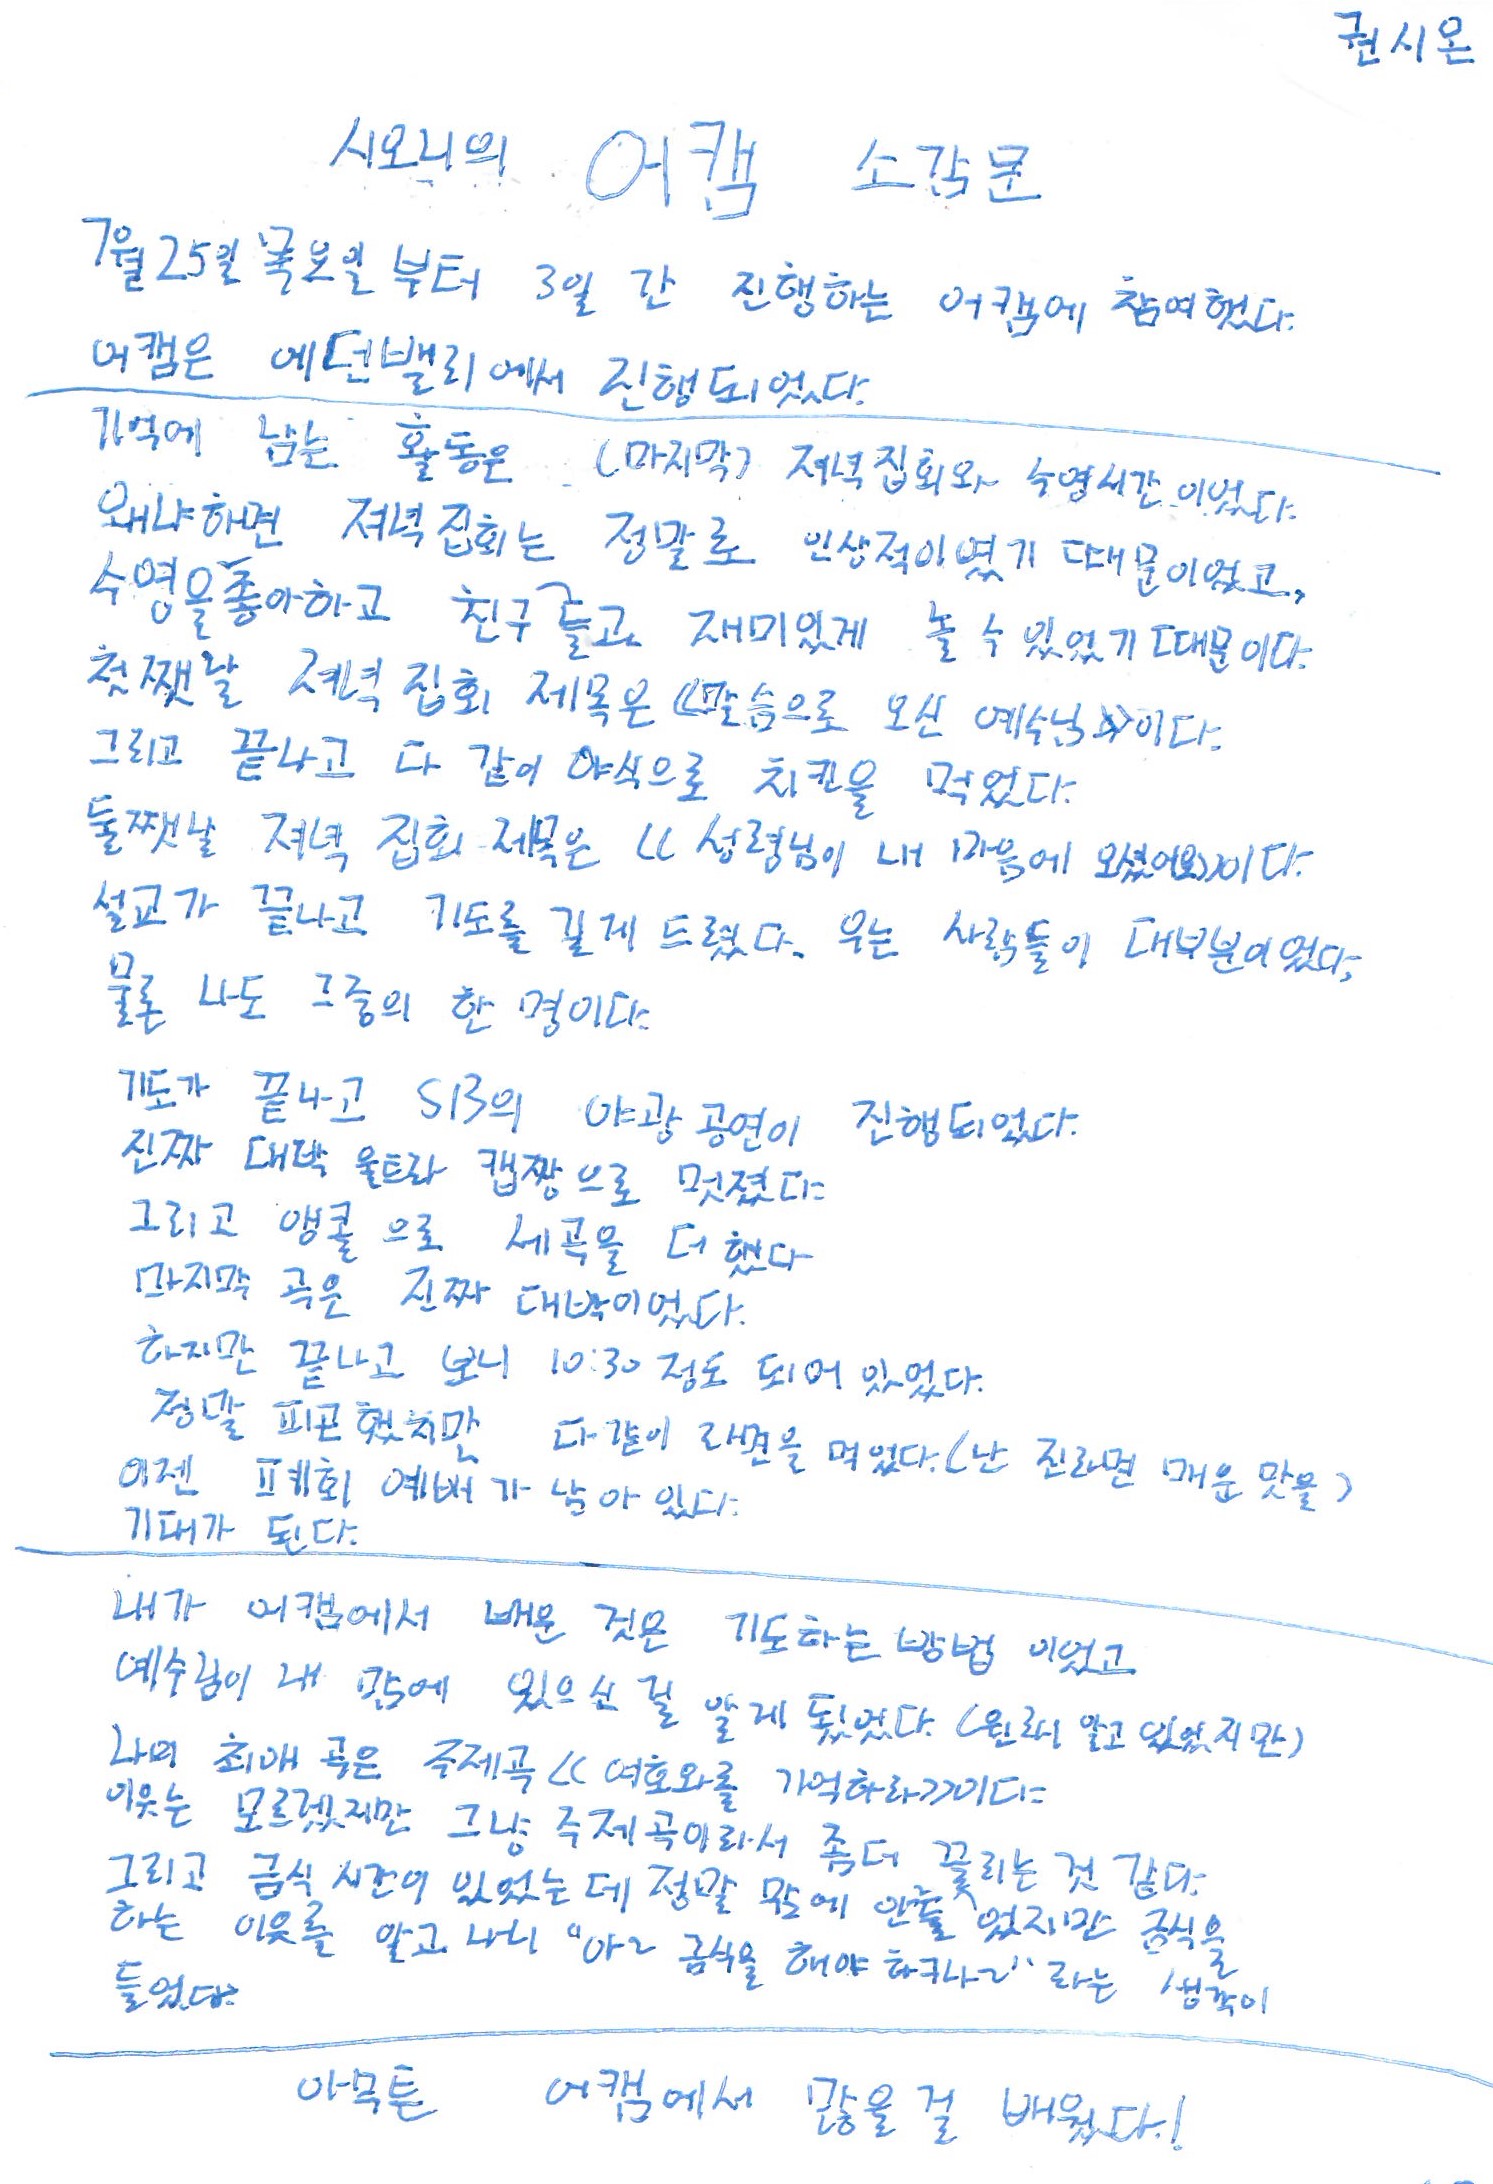 권시온
시오니의 어캠 소감문
7월25일 목요일 부터 3일 간 진행하는 어캠에 참여했다.
어캠은 에덴밸리에서 진행되었다.
기억에 남는 활동은 (마지막) 저녁집회와 수영시간이었다.
왜냐하면 저녁집회는 정말로 인상적이였기 때문이었고,
수영을좋아하고 친구들고 재미있게 놀 수 있었기 때문이다.
첫쨋날 저녁 집회 제목은 《말씀으로 오신 예수님》이다.
그리고 끝나고 다 같이 야식으로 치킨을 먹었다.
둘쨋날 저녁 집회 제목은 《성령님이 내 마음에 오셨어요》이다.
설교가 끝나고 기도를 길게 드렸다. 우는 사람들이 대부분이었다,
물론 나도 그중의 한 명이다.
기도가 끝나고 S13의 야광 공연이 진행되었다.
진짜 대박 울트라 캡짱으로 멋졌다.
그리고 앵콜 으로 세곡을 더 했다
마지막 곡은 진짜 대박이었다.
하지만 끝나고 보니 10:30 정도 되어 있었다.
정말 피곤했지만 다같이 라면을 먹었다.(난 진라면 매운 맛을)
이젠 폐회 예배가 남아 있다.
기대가 된다.
내가 어캠에서 배운 것은 기도하는 방법 이었고
예수님이 내 맘에 있으신 걸 알게 됬었다. (원래 알고 있었지만)
나의 최애 곡은 주제곡 《여호와를 기억하라》이다.
이윳는 모르겟지만 그냥 주제곡이라서 좀더 끌리는 것 같다.
그리고 금식 시간이 있었는데 정말 맘에 안들었지만 금식을
하는 이윳를 알고 나니 "아~ 금식을 해야 하구나~" 라는 생각이
들었다.
아무튼 어캠에서 많을 걸 배웠다!